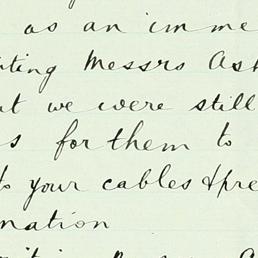 as an imme
iting Messrs Ash
ut we were still
s for them to
to your cables & pre
mation